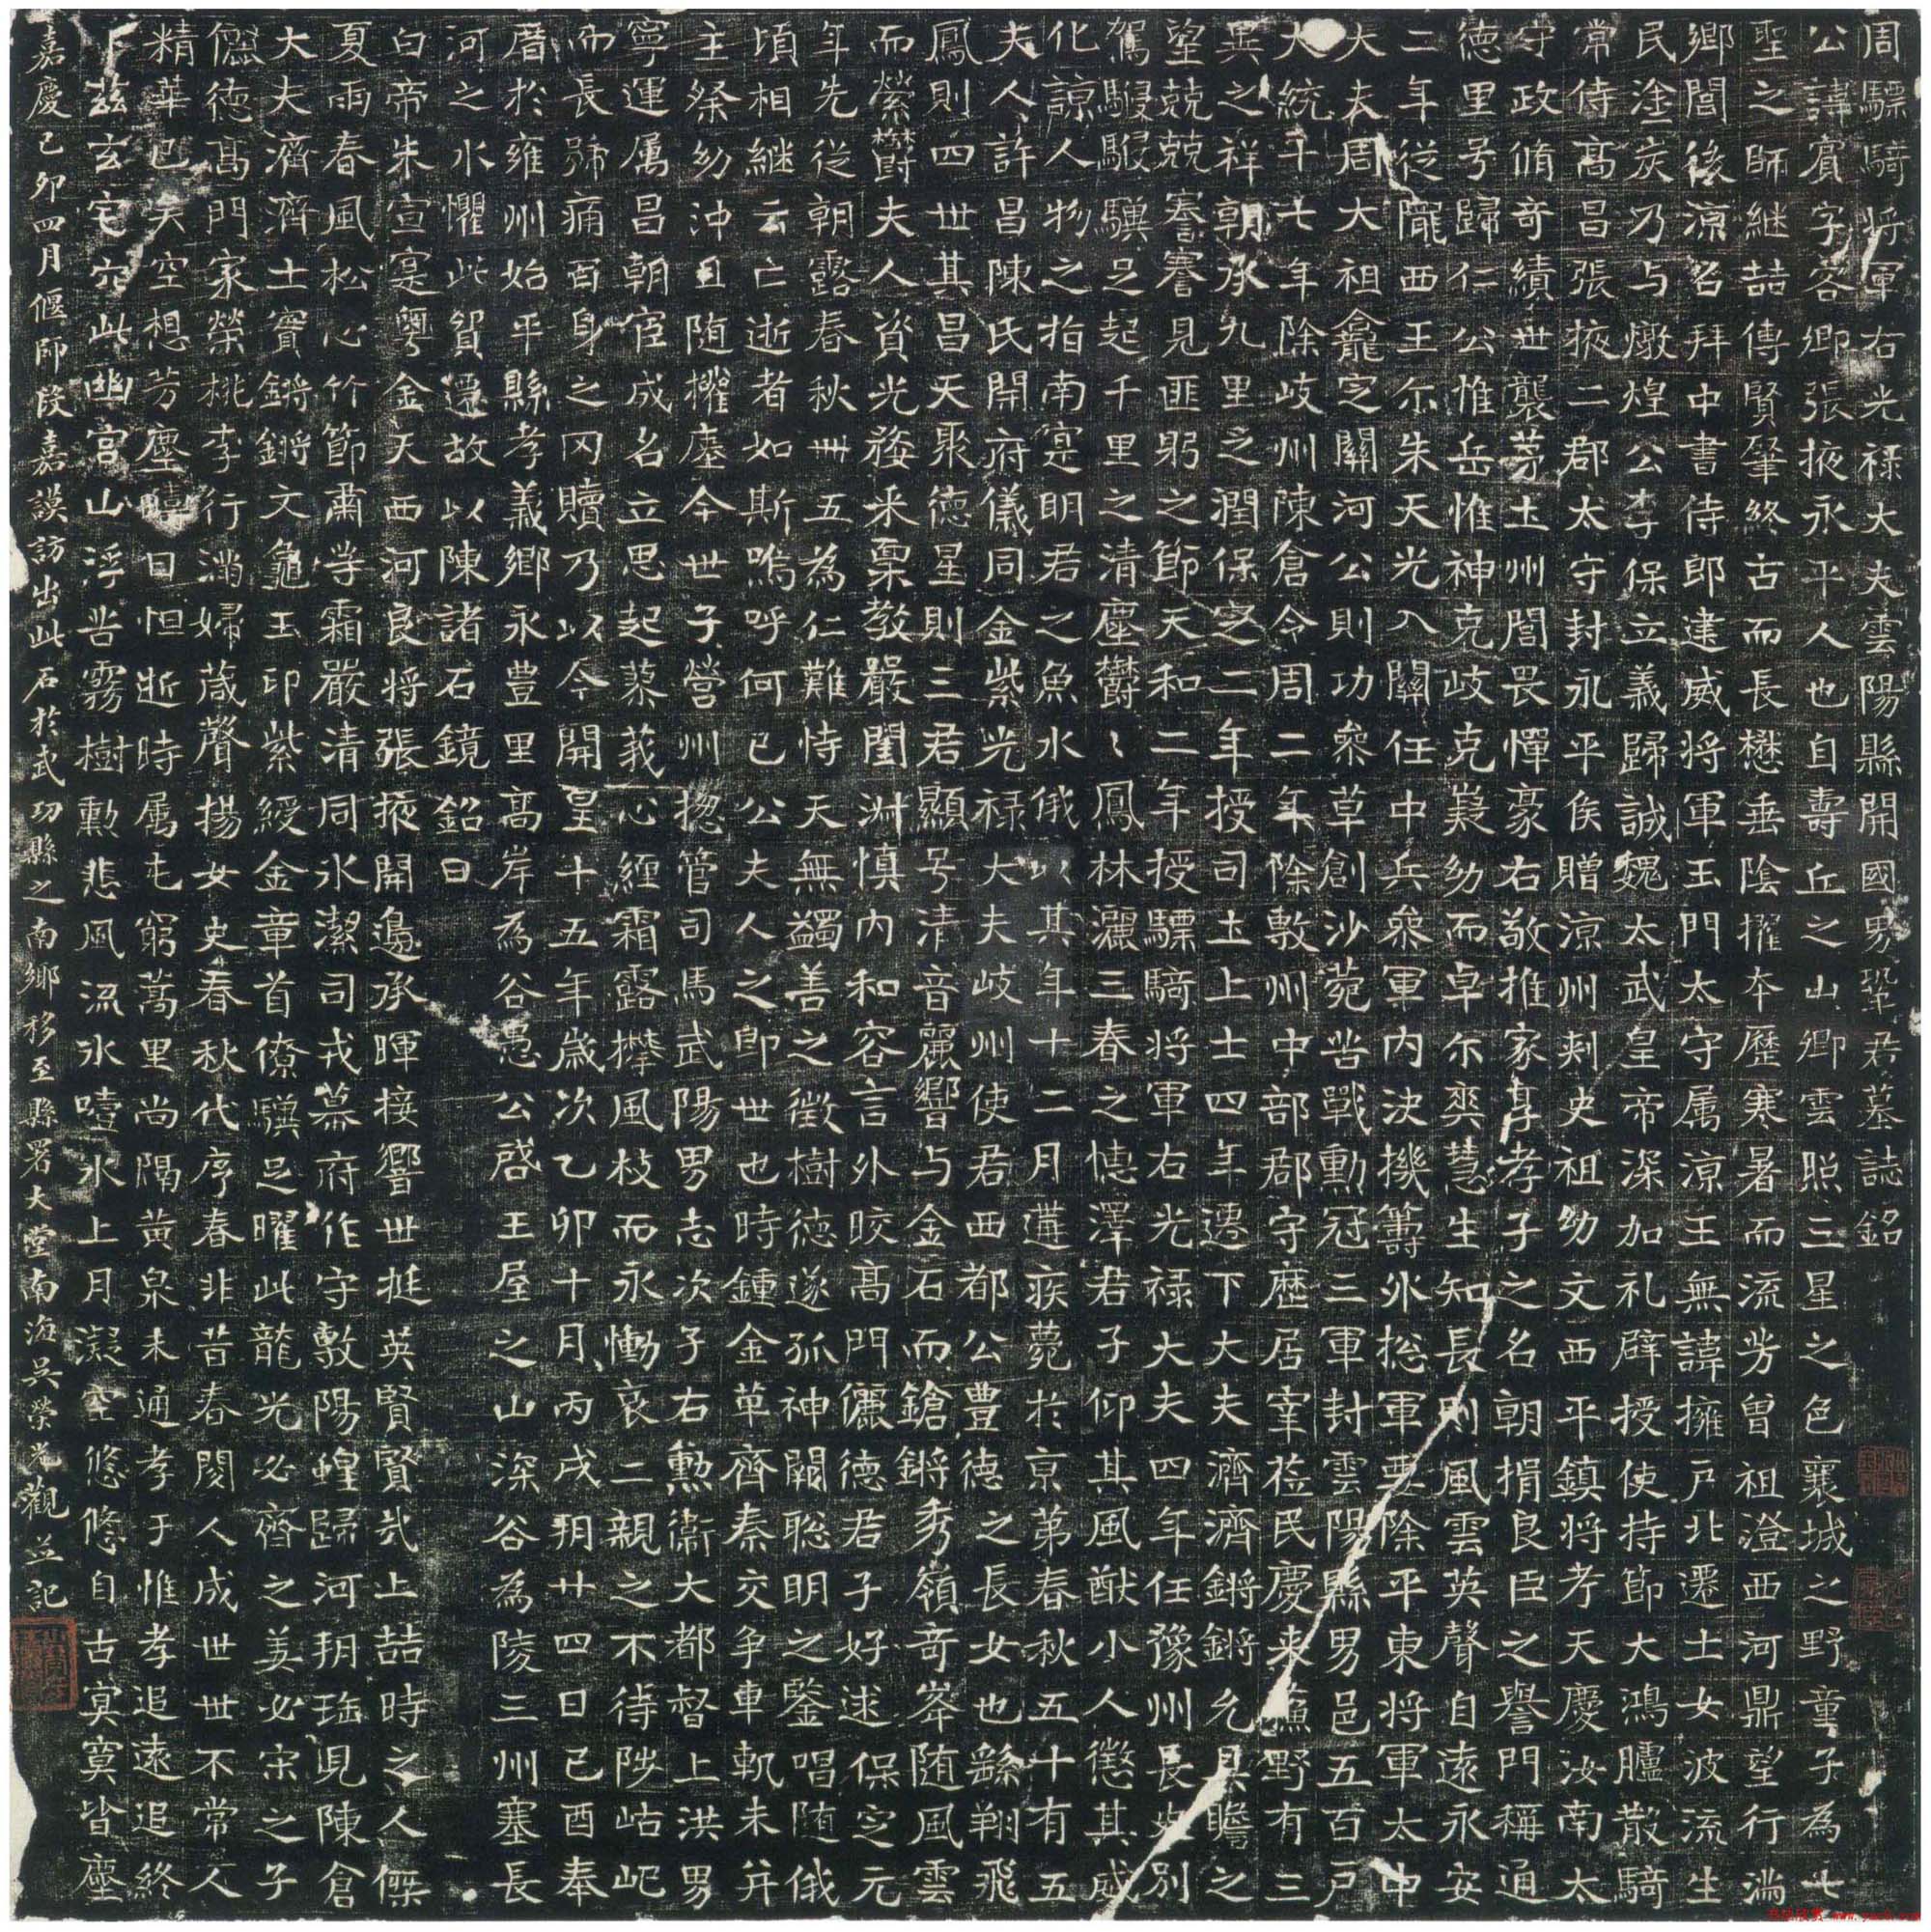 周驃騎將軍右光祿大夫雲陽縣開國男鞏君墓誌銘
公諱賓字客卿張掖永平人也自壽丘之山卿雲照三星之色襄城之野童子為七
聖之師継喆傳賢肇終古而長懋垂陰擢夲歷寒暑而流芳曾祖澄西河鼎望行滿
鄉閭後涼召拜中書侍郎建威將軍玉門太守属涼王無諱擁戸北遷士女波流生
民塗炭乃与燉煌公李保立義歸誠魏太武皇帝深加礼辟授使持節大鴻臚散騎
常侍高昌張掖二郡太守封永平侯贈涼州刾史祖幼文西平鎮將考天慶汝南太
守政脩奇績世襲茅土州閭畏憚豪右敬推家享孝子之名朝揖良臣之譽門稱通
德里号歸仁公惟岳惟神克岐克嶷幼而卓尒爽慧生知長則風雲英聲自遠永安
二年從隴西王尒朱天光入關任中兵叅軍内决機籌外揔軍要除平東將軍太中
大夫周大祖龕定關河公則功叅草創沙菀苦戰勳冠三軍封雲陽縣男邑五百戸
大統十七年除岐州陳倉令周二年除敷州中部郡守歴居宰莅民慶来蘓野有三
異之祥朝承九里之潤保定二年授司土上士四年遷下大夫濟濟鏘鏘允具瞻之
望兢兢謇謇見匪躬之節天和二年授驃騎將軍右光禄大夫四年任豫州長史別
駕駸駸驥足起千里之清塵欝〻鳳林灑三春之憓澤君子仰其風猷小人懲其威
化諒人物之指南寔明君之魚水俄以其年十二月遘疾薨於京第春秋五十有五
夫人許昌陳氏開府儀同金紫光禄大夫岐州使君西都公豊德之長女也繇翔飛
鳳則四世其昌天聚德星則三君顯号清音麗響与金石而鎗鏘秀嶺奇峯随風雲
而縈欝夫人資光婺釆稟教嚴閨淋慎内和容言外晈高門儷德君子好逑保定元
年先從朝露春秋卌五為仁難恃天無蠲善之徵樹德遂孤神闕聡明之鑒唱随俄
頃相継云亡逝者如斯嗚呼何已公夫人之即世也時鍾金革齊秦交争車軌未并
主祭幼沖且随欑塗今世子營州揔管司馬武陽男志次子右勲衞大都督上洪男
寧運属昌朝宦成名立思起蓼莪心纏霜露攀風枝而永慟哀二親之不待陟岵屺
而長號痛百身之冈贖乃以今開皇十五年歲次乙卯十月丙戌朔廿四日己酉奉
厝於雍州始平縣孝義鄉永豊里高岸為谷愚公啓王屋之山深谷為陵三州塞長
河之水懼此貿遷故以陳諸石鏡銘曰
白帝朱宣寔粵金天西河良將張掖開邊承暉接響世挺英賢賢哉上喆時之人傑
夏雨春風松心竹節肅等霜嚴清同氷潔司戎幕府作守敷陽蝗歸河朔珤見陳倉
大夫濟濟士寳鏘鏘文龜玉印紫綬金章首僚驥足曜此龍光必齊之美必宋之子
儷德高門家榮桃李行滿婦葴聲揚女史春秋代序春非昔春閱人成世世不常人
精華已矣空想芳塵曀曀日怛逝時属屯窮蒿里尚隔黃泉未通孝于惟孝追遠追終
卜兹玄宅穴此幽宫山浮苦霧樹動悲風流氷噎水上月凝空悠悠自古寘寞皆塵
嘉慶己夘四月偃師段嘉謨訪出此石於武功縣之南鄉移至縣署大堂南海吳榮光觀並記